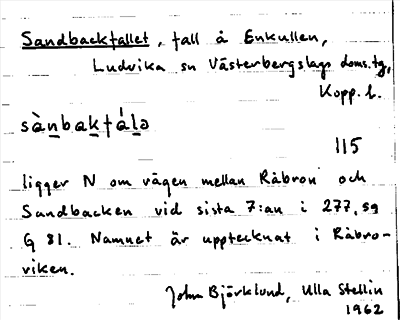 Sandbacktallet, tall å Enkullen,
Ludvika sn Västerbergslags doms.tg,
Kopp. l.
sànbaktálə
115
ligger N om vägen mellan Råbron och
Sandbacken vid sista 7:an i 277,59
G 81. Namnet är upptecknat i Råbro-
viken.
John Björklund, Ulla Stellin
1962